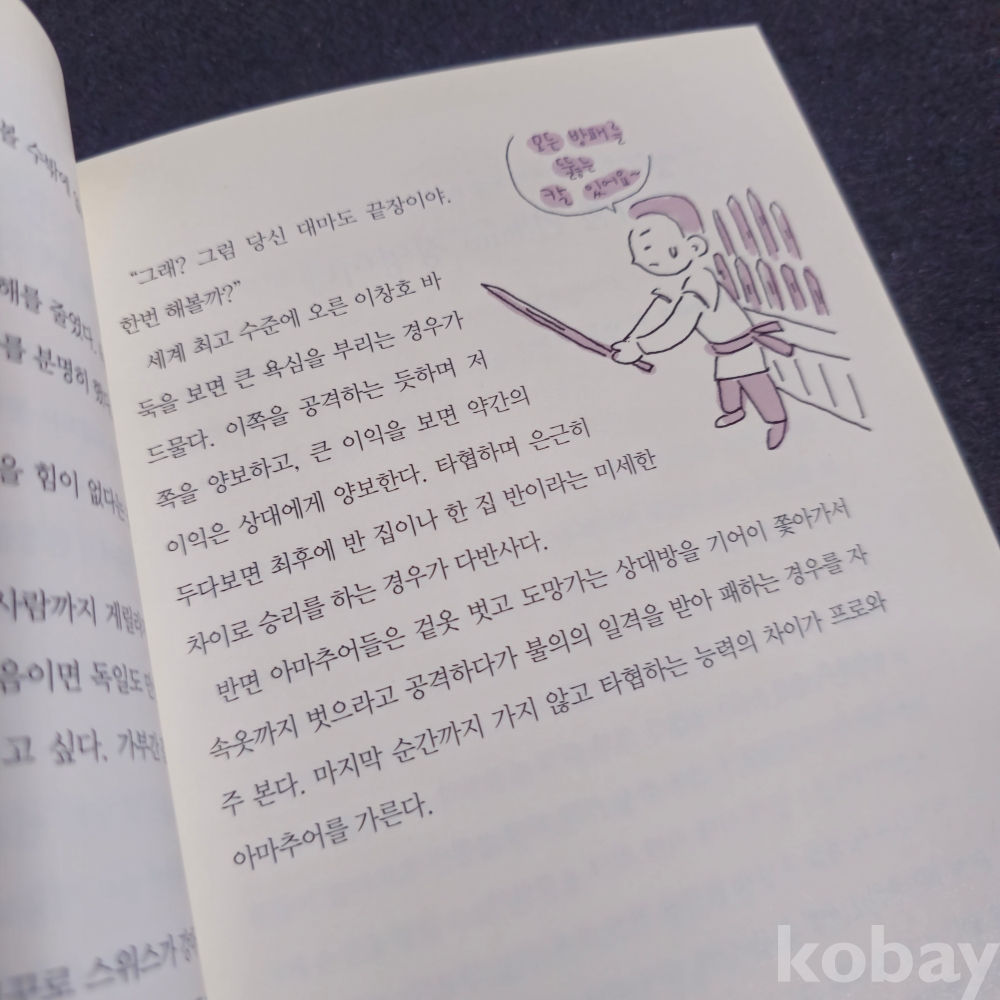 볼 수밖에
해를 줄였다.
를 분명히 했다
을 힘이 없다는
사람까지 게릴라
음이면 독일도
고 싶다. 가부간
꾸로 스위스가
“그래? 그럼 당신 대마도 끝장이야.
한번 해볼까?”
세계 최고 수준에 오른 이창호 바
둑을 보면 큰 욕심을 부리는 경우가
드물다. 이쪽을 공격하는 듯하며 저
쪽을 양보하고, 큰 이익을 보면 약간의
이익은 상대에게 양보한다. 타협하며 은근히
두다보면 최후에 반 집이나 한 집 반이라는 미세한
차이로 승리를 하는 경우가 다반사다.
반면 아마추어들은 겉옷 벗고 도망가는 상대방을 기어이 쫓아가서
속옷까지 벗으라고 공격하다가 불의의 일격을 받아 패하는 경우를 자
주 본다. 마지막 순간까지 가지 않고 타협하는 능력의 차이가 프로와
아마추어를 가른다.
모든 방패를
뚫는
칼 있어요~
kobay